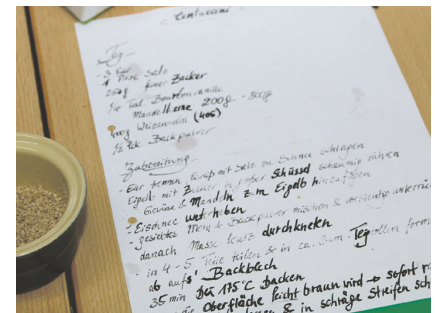 Cantuccini
Teig
3 Eier
1 Prise Salz
250g feiner Zucker
1/4 Tal Bourbonvanille
Mandelkerne 200g - 300g
400g Weizenmehl (405)
1/2 Pck Backpulver
Zubereitung
- Eier trennen, Eiweiß mit Salz zu Schnee schlagen
Eigelb mit Zucker in grober Schüssel schaumig rühren
Gewürze & Mandeln zum Eigelb hinzufügen
- Eischnee unterheben
- gesiebtes Mehl & Backpulver mischen &
danach Masse kurz durchkneten
in 4-5 Teile teilen & in ca. 3cm Teigrollen
ab auf's Backblech
35 min bei 175°C backen
die Oberfläche leicht braun wird → sofort
& in schräge Streifen